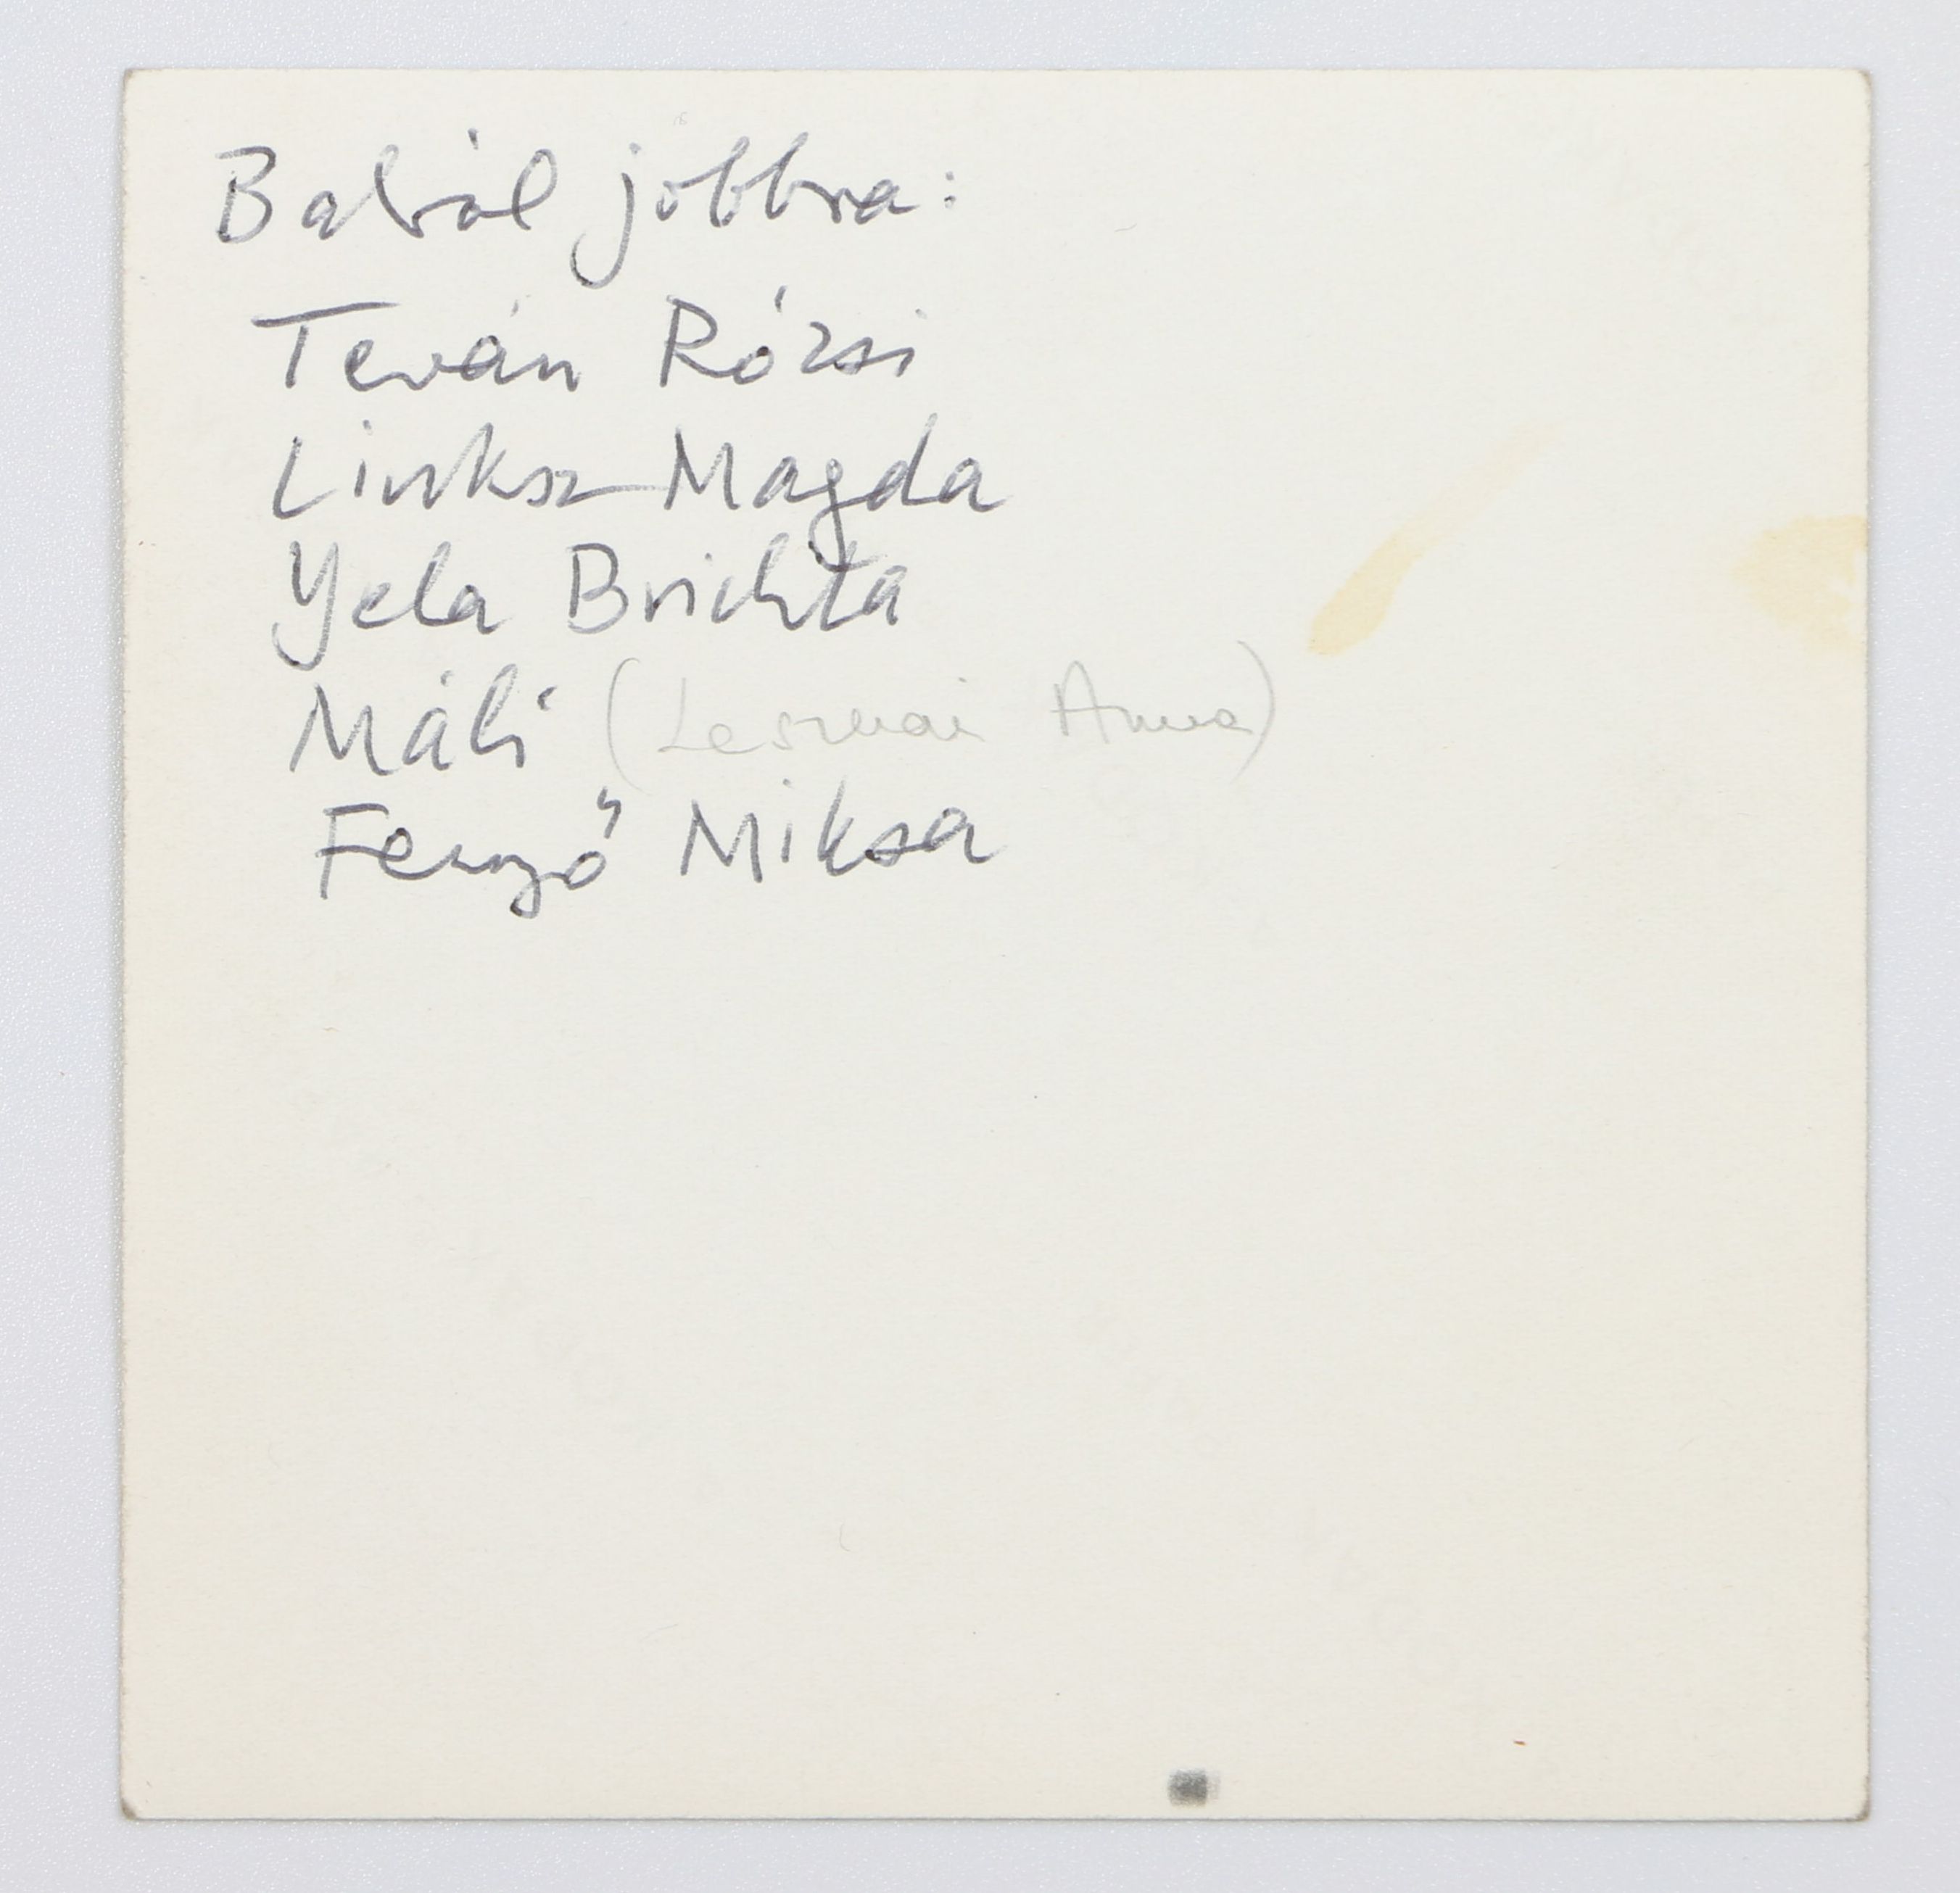 Balról jobbra:
Teván Rózsi
Linksz Magda
Yela Brichta
Máli (Lesznai Anna)
Fenyő Miksa